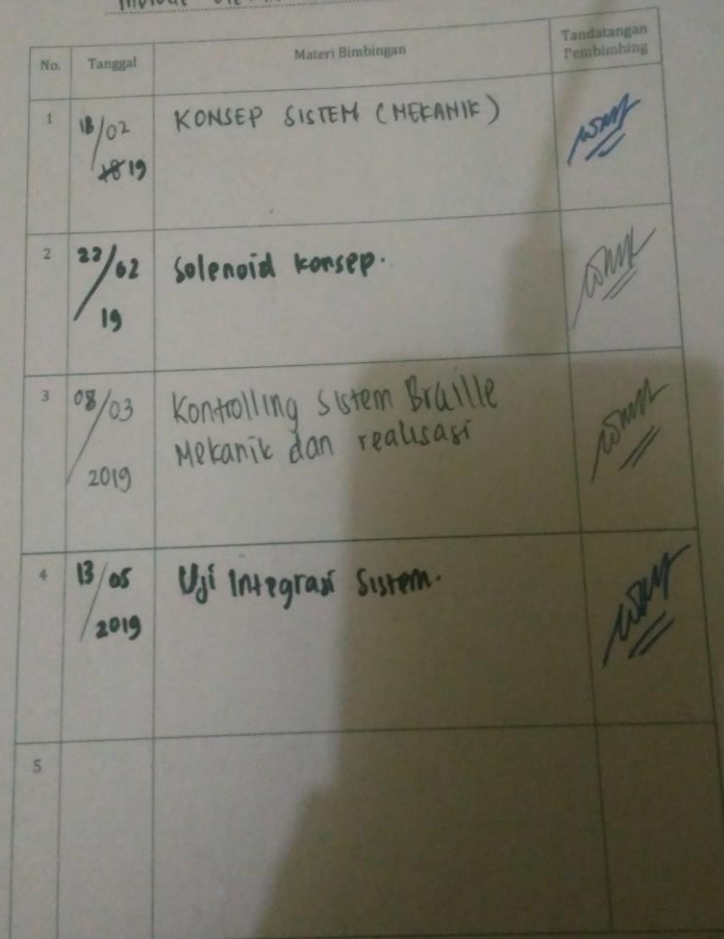 No. Tanggal Materi Bimbingan Tandatangan
Pembimbing
1 18/02 KONSEP SISTEM (MEKANIK)
19
2 22/02 Solenoid konsep.
19
3 08/03 Kontrolling Sistem Braille
Mekanik dan realisasi
2019
4 13/05 Uji Integrasi Sistem.
2019
5